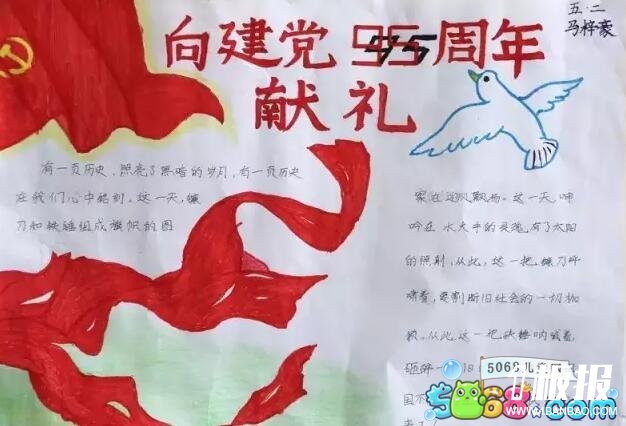 五·二
马梓豪
向建党95周年
献礼
有一页历史，照亮了黑暗的岁月，有一页历史
在我们心中酷刻。这一天，镰
刀和铁锤组成旗帜的图
案在迎风飘扬。这一天，呻
吟在水火中的灵魂，有了太阳
的照射，从此，这一把镰刀呼
啸着，要割断旧社会的一切枷
锁。从此，这一把铁锤呐喊着
砸碎一
旧
国不
来了
5068儿
5068.com
板报
WWW.BANBAO.COM